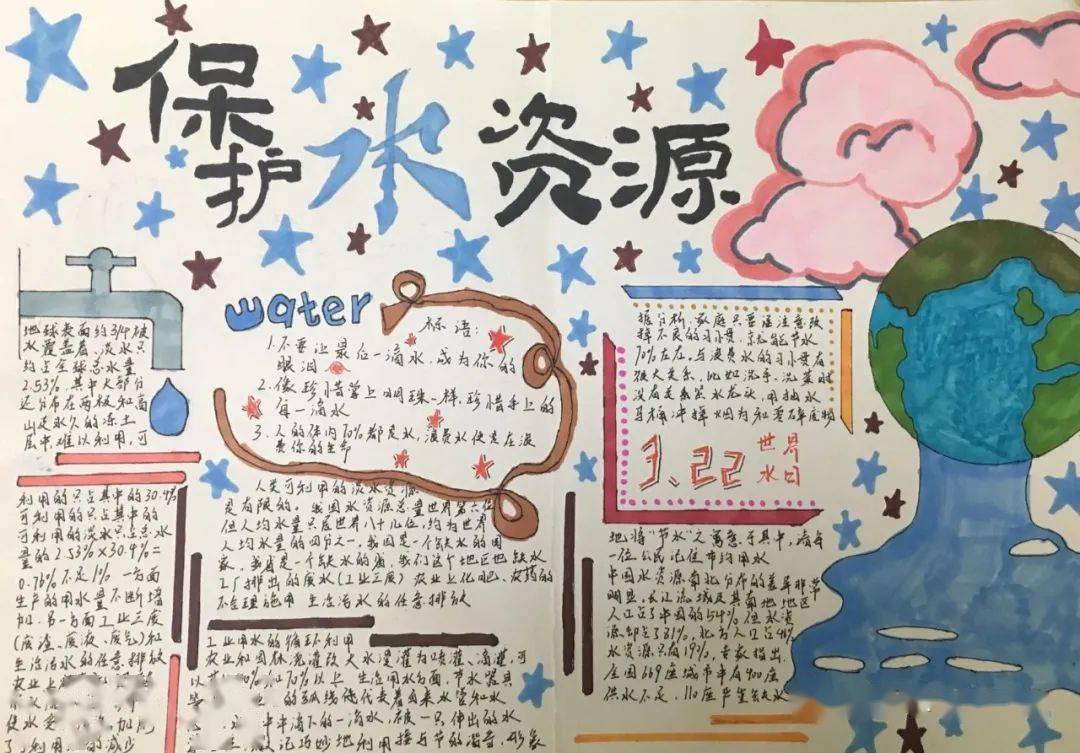 保护水资源
water
地球表面约3/4被
水覆盖着,淡水只
约占全球总水量
2.53%,其中大部分
还分布在两极和高
山是永久的冻土
层中,难以利用,可
利用的只占其中的30.4%
可利用的只占其中的
可利用的淡水只占总水
量的2.53%×30.4%=
0.76%不足1% 一方面
生产的用水量不断增
加.另一方面工业三废
(废渣、废液、废气)和
生活污水的任意排放
农业上
标语:
1.不要让最后一滴水,成为你的
眼泪
2.像珍惜掌上明珠一样,珍惜手上的
每一滴水
3.人的体内70%都是水,浪费水便是在浪
费你的生命
人类可利用的淡水资源
是有限的。我国水资源总量世界第六位
但人均水量只居世界八十几位,约为世界
人均水量的四分之一,我国是一个缺水的国
家,我省是一个缺水的省,我们这个地区也缺水
工厂排出的废水(工业三废)农业上化肥、农药的
不合理施用 生活污水的任意排放
工业用水的循环利用
农业和园林浇灌改大水漫灌为喷灌、滴灌,可
70%以上 生活用水方面,节水器具
的弧线代表着自来水管和水
滴下的一滴水,被一只伸出的水
巧妙地利用接与节的谐音,形象
据分析,家庭只要注意改
掉不良的习惯,就能节水
70%左右,与浪费水的习惯有
很大关系,比如洗手、洗菜时
没有及时关水龙头,用抽水
马桶冲掉烟为和零碎废物
3.22 世界
水日
地将“节水”之寓意于其中,
一位公民记住节约用水
中国水资源南北分布的差异非常
明显,长江流域及其南地地区
人口占了中国的54%但水资
源却占了81%,北方人口占46%
水资源只有19%,专家指出,
全国669座城市中有400座
供水不足,110座严重缺水